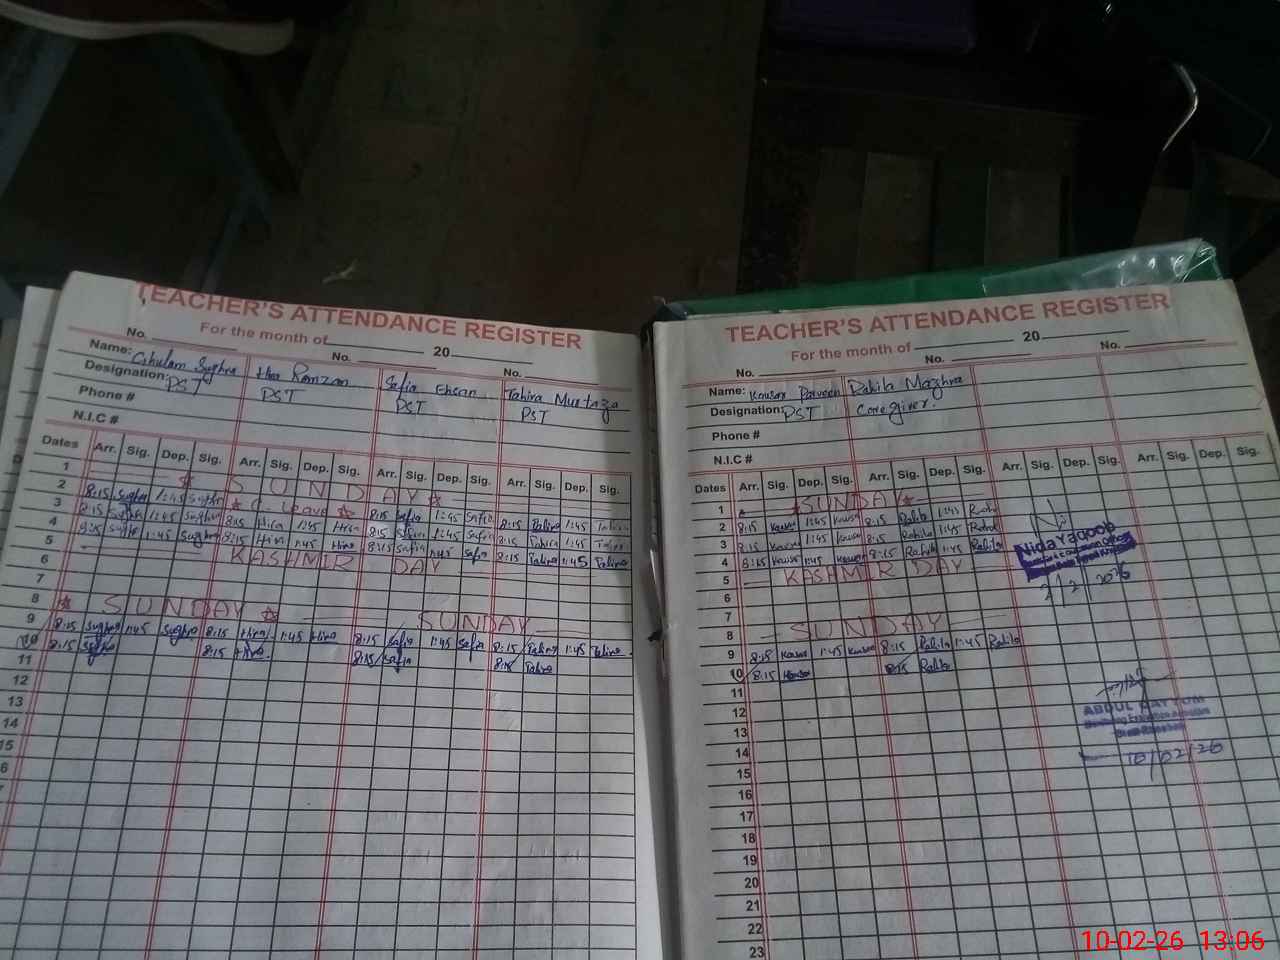 TEACHER'S ATTENDANCE REGISTER
For the month of 20
No. No. No.
Name: Ghulam Sughra Hira Ramzan Safia Ehsan Tahira Murtaza
Designation: PST PST PST PST
Phone #
N.I.C #
Dates Arr. Sig. Dep. Sig. Arr. Sig. Dep. Sig. Arr. Sig. Dep. Sig. Arr. Sig. Dep. Sig.
1 SUNDAY
2 8:15 Sughra 1:45 Sughra Leave 8:15 Safia 1:45 Safia 8:15 Tahira 1:45 Tahira
3 8:15 Sughra 1:45 Sughra 8:15 Hira 1:45 Hira 8:15 Safia 1:45 Safia 8:15 Tahira 1:45 Tahira
4 8:15 Sughra 1:45 Sughra 8:15 Hira 1:45 Hira 8:15 Safia 1:45 Safia 8:15 Tahira 1:45 Tahira
5 KASHMIR DAY
6
7
8 SUNDAY SUNDAY
9 8:15 Sughra 1:45 Sughra 8:15 Hira 1:45 Hira 8:15 Safia 1:45 Safia 8:15 Tahira 1:45 Tahira
10 8:15 Sughra 8:15 Hira 8:15 Safia 8:15 Tahira
11
12
13
14
15
TEACHER'S ATTENDANCE REGISTER
For the month of 20
No. No. No.
Name: Kausar Parveen Rahila Mazhra
Designation: PST Caregiver.
Phone #
N.I.C #
Dates Arr. Sig. Dep. Sig. Arr. Sig. Dep. Sig. Arr. Sig. Dep. Sig. Arr. Sig. Dep. Sig.
1 SUNDAY
2 8:15 Kausar 1:45 Kausar 8:15 Rahila 1:45 Rahila
3 8:15 Kausar 1:45 Kausar 8:15 Rahila 1:45 Rahila
4 8:15 Kausar 1:45 Kausar 8:15 Rahila 1:45 Rahila
5 KASHMIR DAY
Nida Yaqoob
6
7
8 SUNDAY
9 8:15 Kausar 1:45 Kausar 8:15 Rahila 1:45 Rahila
10 8:15 Kausar 8:15 Rahila
11
12
ABDUL QAYYUM
13
14
10/02/26
15
16
17
18
19
20
21
22
23
10-02-26 13:06